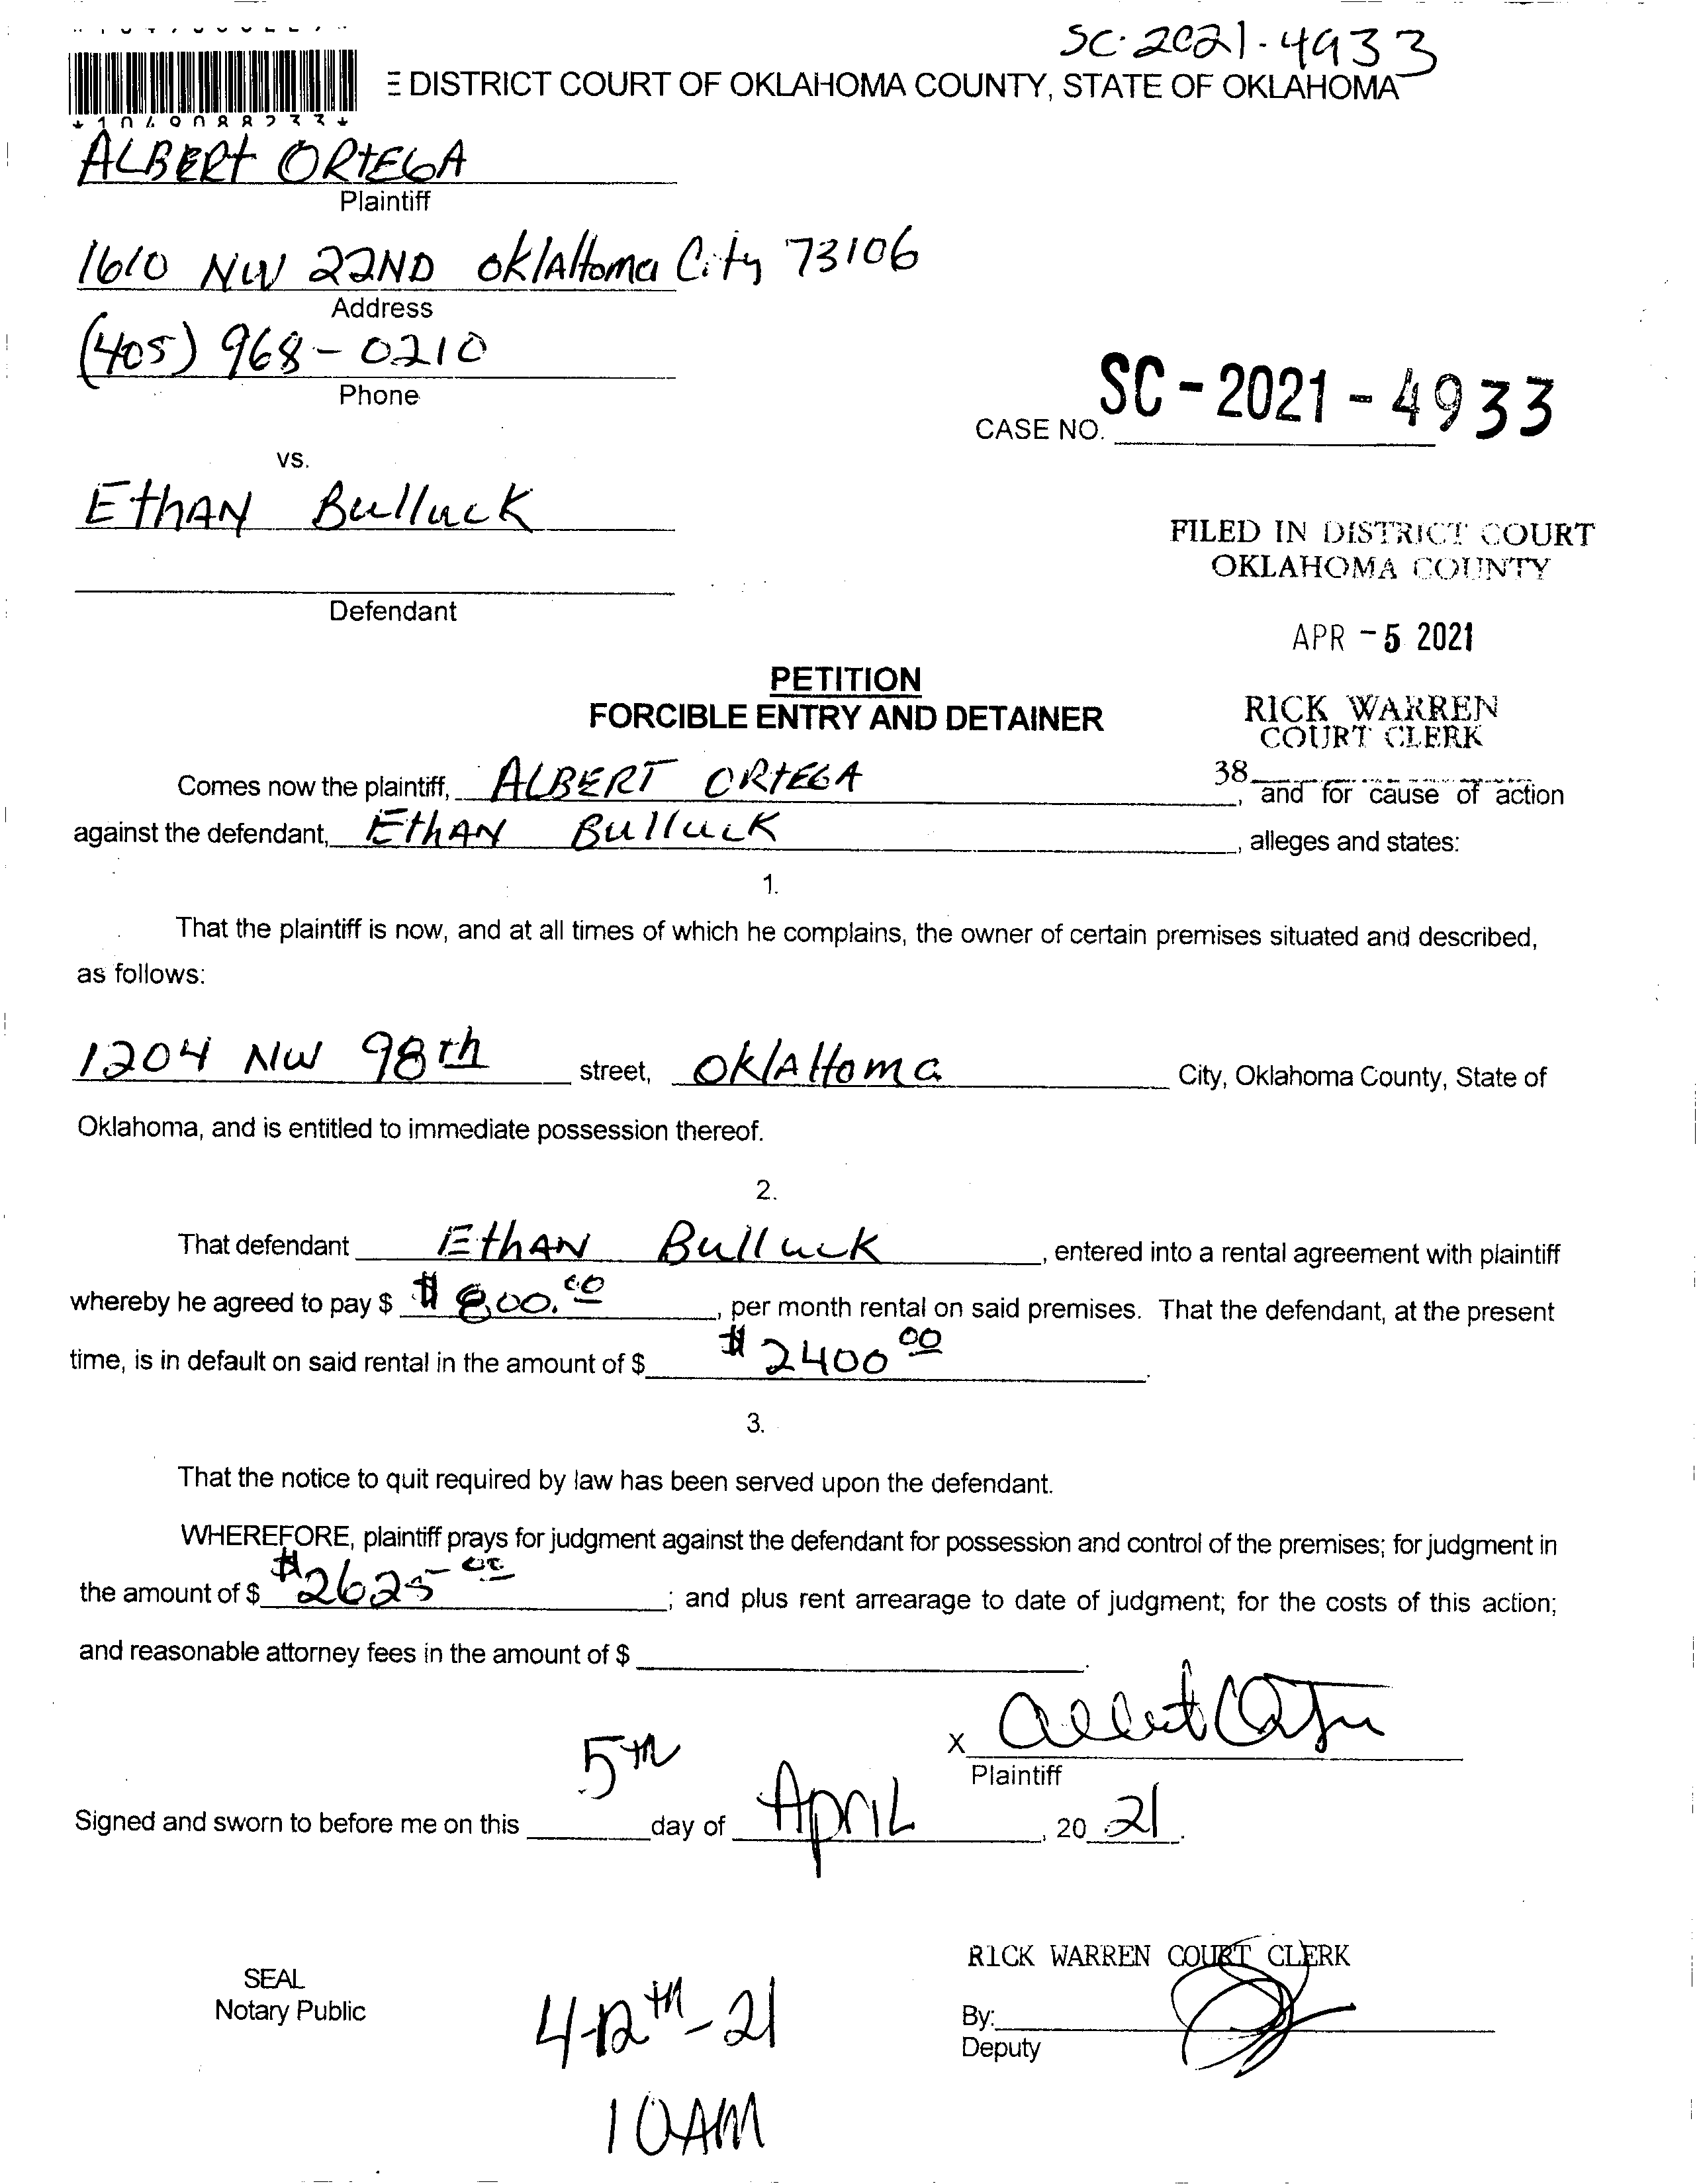 SC-2021-4933
E DISTRICT COURT OF OKLAHOMA COUNTY, STATE OF OKLAHOMA
ALBERT ORTEGA
Plaintiff
1610 NW 22ND OklAHoma City 73106
Address
(405) 968-0210
Phone
CASE NO. SC-2021-4933
vs.
EthAN Bulluck
FILED IN DISTRICT COURT
OKLAHOMA COUNTY
Defendant
APR -5 2021
PETITION
FORCIBLE ENTRY AND DETAINER
RICK WARREN
COURT CLERK
38
Comes now the plaintiff, ALBERT ORTEGA, and for cause of action
against the defendant, EthAN Bulluck, alleges and states:
1.
That the plaintiff is now, and at all times of which he complains, the owner of certain premises situated and described,
as follows:
1204 NW 98th street, OklAHoma City, Oklahoma County, State of
Oklahoma, and is entitled to immediate possession thereof.
2.
That defendant EthAN Bulluck, entered into a rental agreement with plaintiff
whereby he agreed to pay $ $800.00, per month rental on said premises. That the defendant, at the present
time, is in default on said rental in the amount of $ $2400 00.
3.
That the notice to quit required by law has been served upon the defendant.
WHEREFORE, plaintiff prays for judgment against the defendant for possession and control of the premises; for judgment in
the amount of $ $2625-00; and plus rent arrearage to date of judgment; for the costs of this action;
and reasonable attorney fees in the amount of $
X
Plaintiff
Signed and sworn to before me on this 5th day of April, 2021.
RICK WARREN COURT CLERK
SEAL
Notary Public
By:
Deputy
4-12th-21
10AM